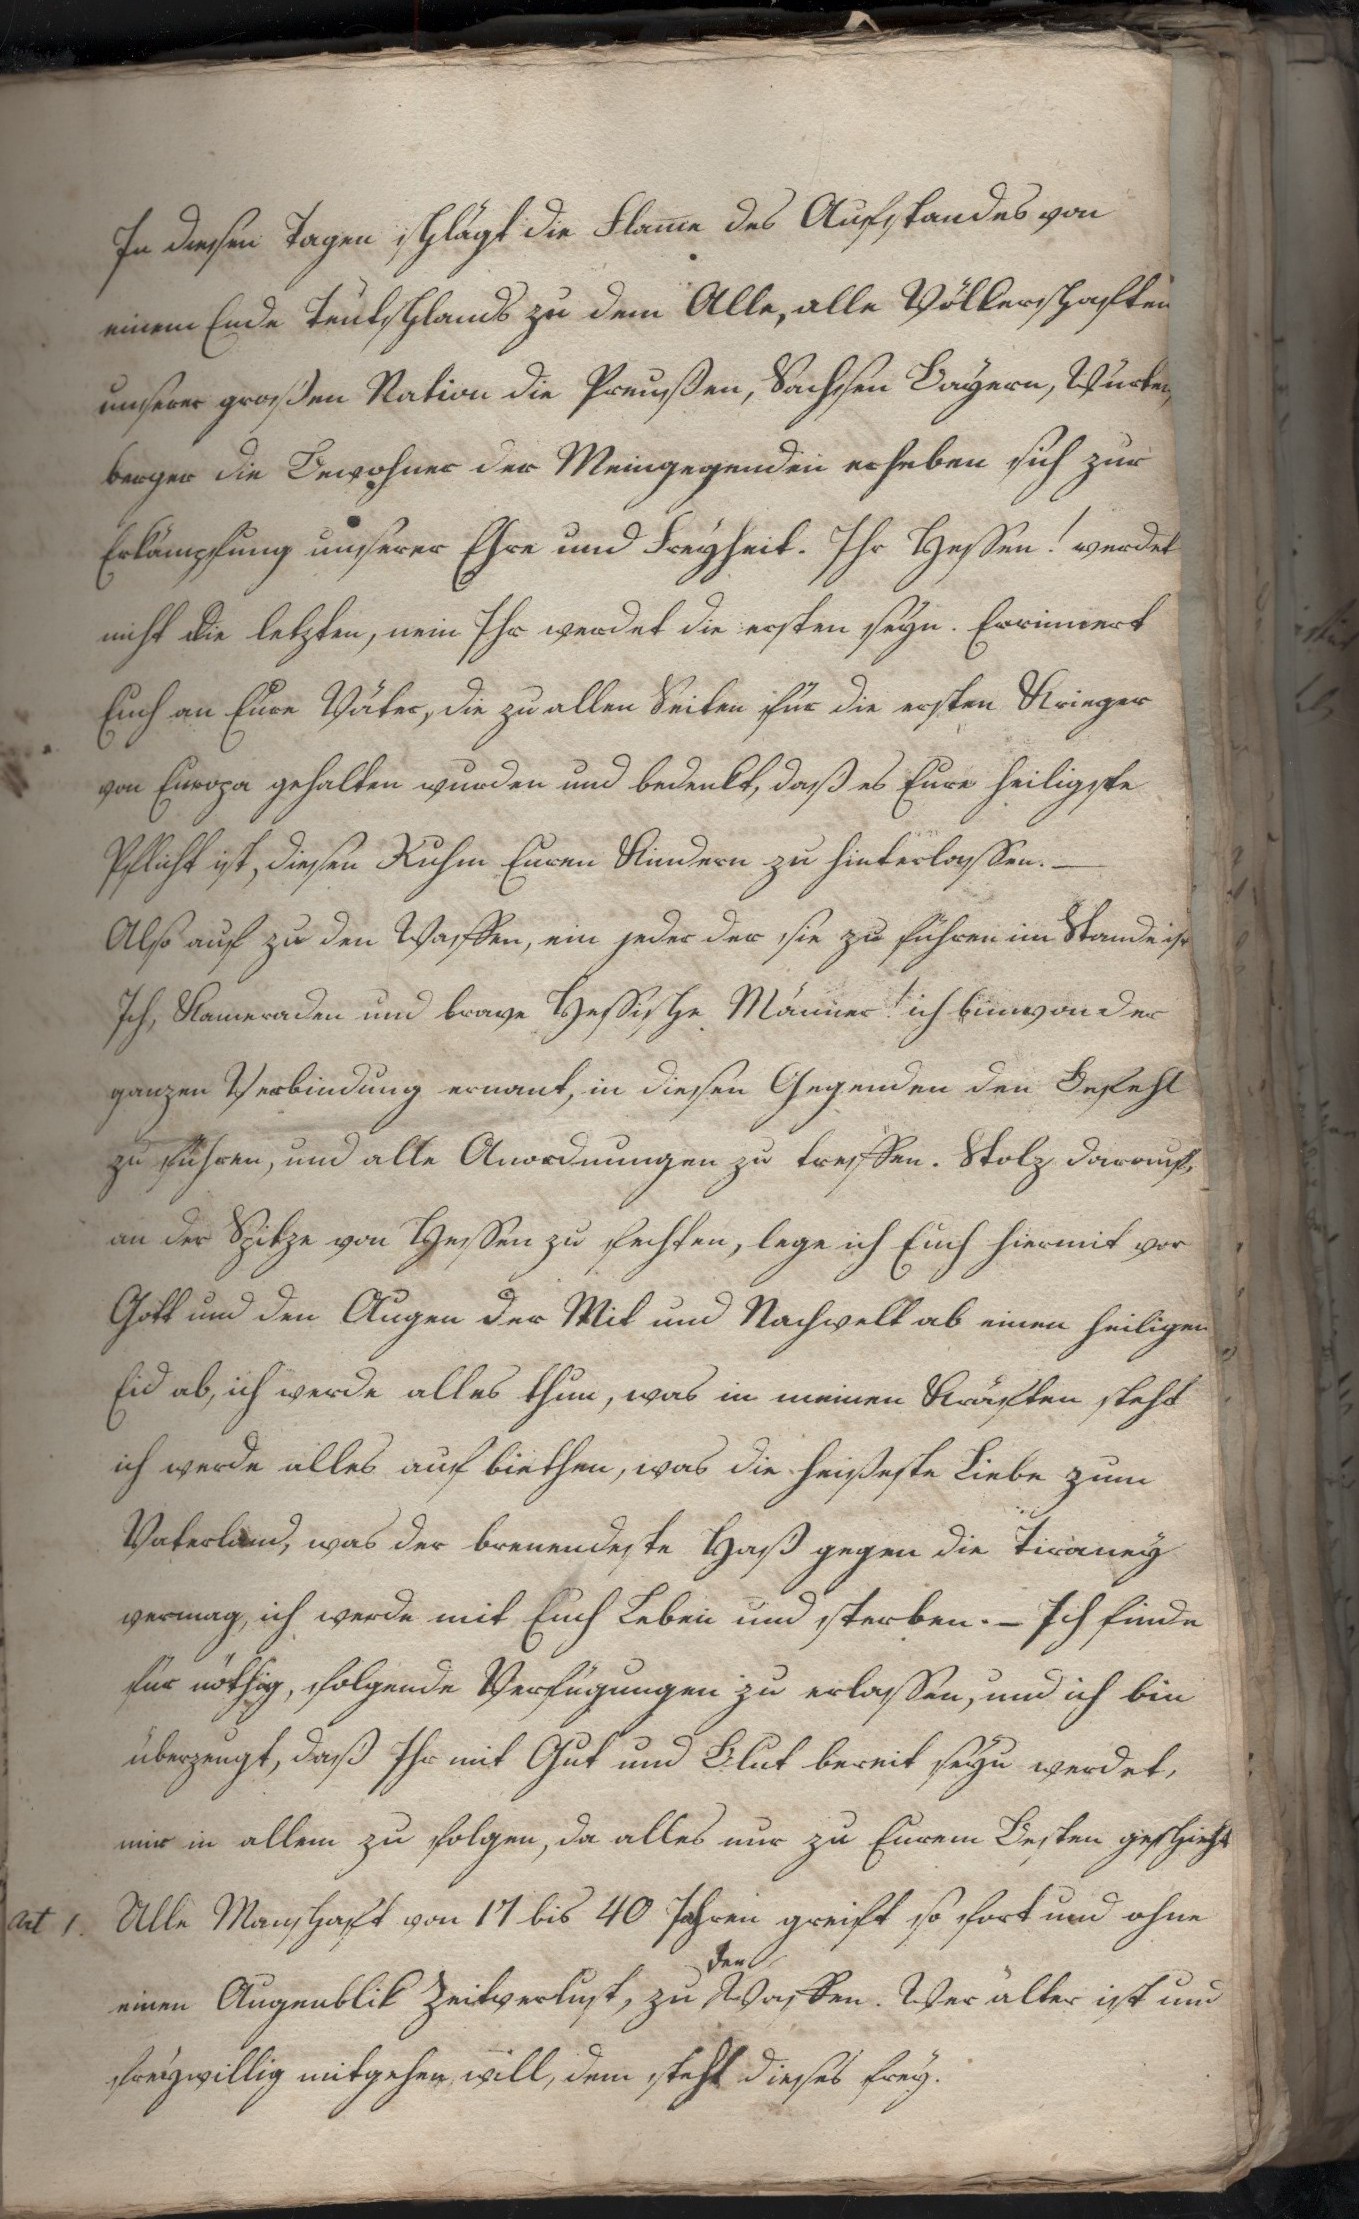 In diesen Tagen schlägt die Flam̄e des Aufstandes von
einem Ende Teutschlands zu dem Alle, alle Völkerschaften
unserer großen Nation die Preußen, Sachsen Bayern, Würtem,
berger die Bewohner der Meingegenden erheben sich zur
Erkämpfung unserer Ehre und Freyheit. Ihr Hessen! werdet
nicht die letzten, nein Ihr werdet die ersten seyn. Errinnert
Euch an Eure Väter, die zu allen Zeiten für die ersten Krieger
von Europa gehalten wurden und bedenkt, daß es Eure heiligste
Pflicht ist, diesen Ruhm Euren Kindern zu hinterlassen. —
Also auf zu den Waffen, ein jeder der sie zu führen im Stande ist
Ich, Kameraden und brave Hessische Männer! ich bin von der
ganzen Verbindung ernant, in diesen Gegenden den Befehl
zu führen, und alle Anordnungen zu treffen. Stolz darauf,
an der Spitze von Hessen zu fechten, lege ich Euch hiermit vor
Gott und den Augen der Mit und Nachwelt ab einen heiligen
Eid ab, ich werde alles thun, was in meinen Kräften steht
ich werde alles auf biethen, was die heißeste Liebe zum
Vaterland, was der brenendeste Haß gegen die Tiraney
vermag, ich werde mit Euch Leben und sterben. — Ich finde
für nöthig, folgende Verfügungen zu erlassen, und ich bin
überzeugt, daß Ihr mit Gut und Blut bereit seyn werdet,
mir in allem zu folgen, da alles nur zu Eurem Besten geschieht
Art 1. Alle Manschaft von 17 bis 40 Jahren greift so fort und ohne
den
einen Augenblik Zeitverlust, zu Waffen. Wer älter ist und
freywillig mitgehen will, dem steht dieses frey.